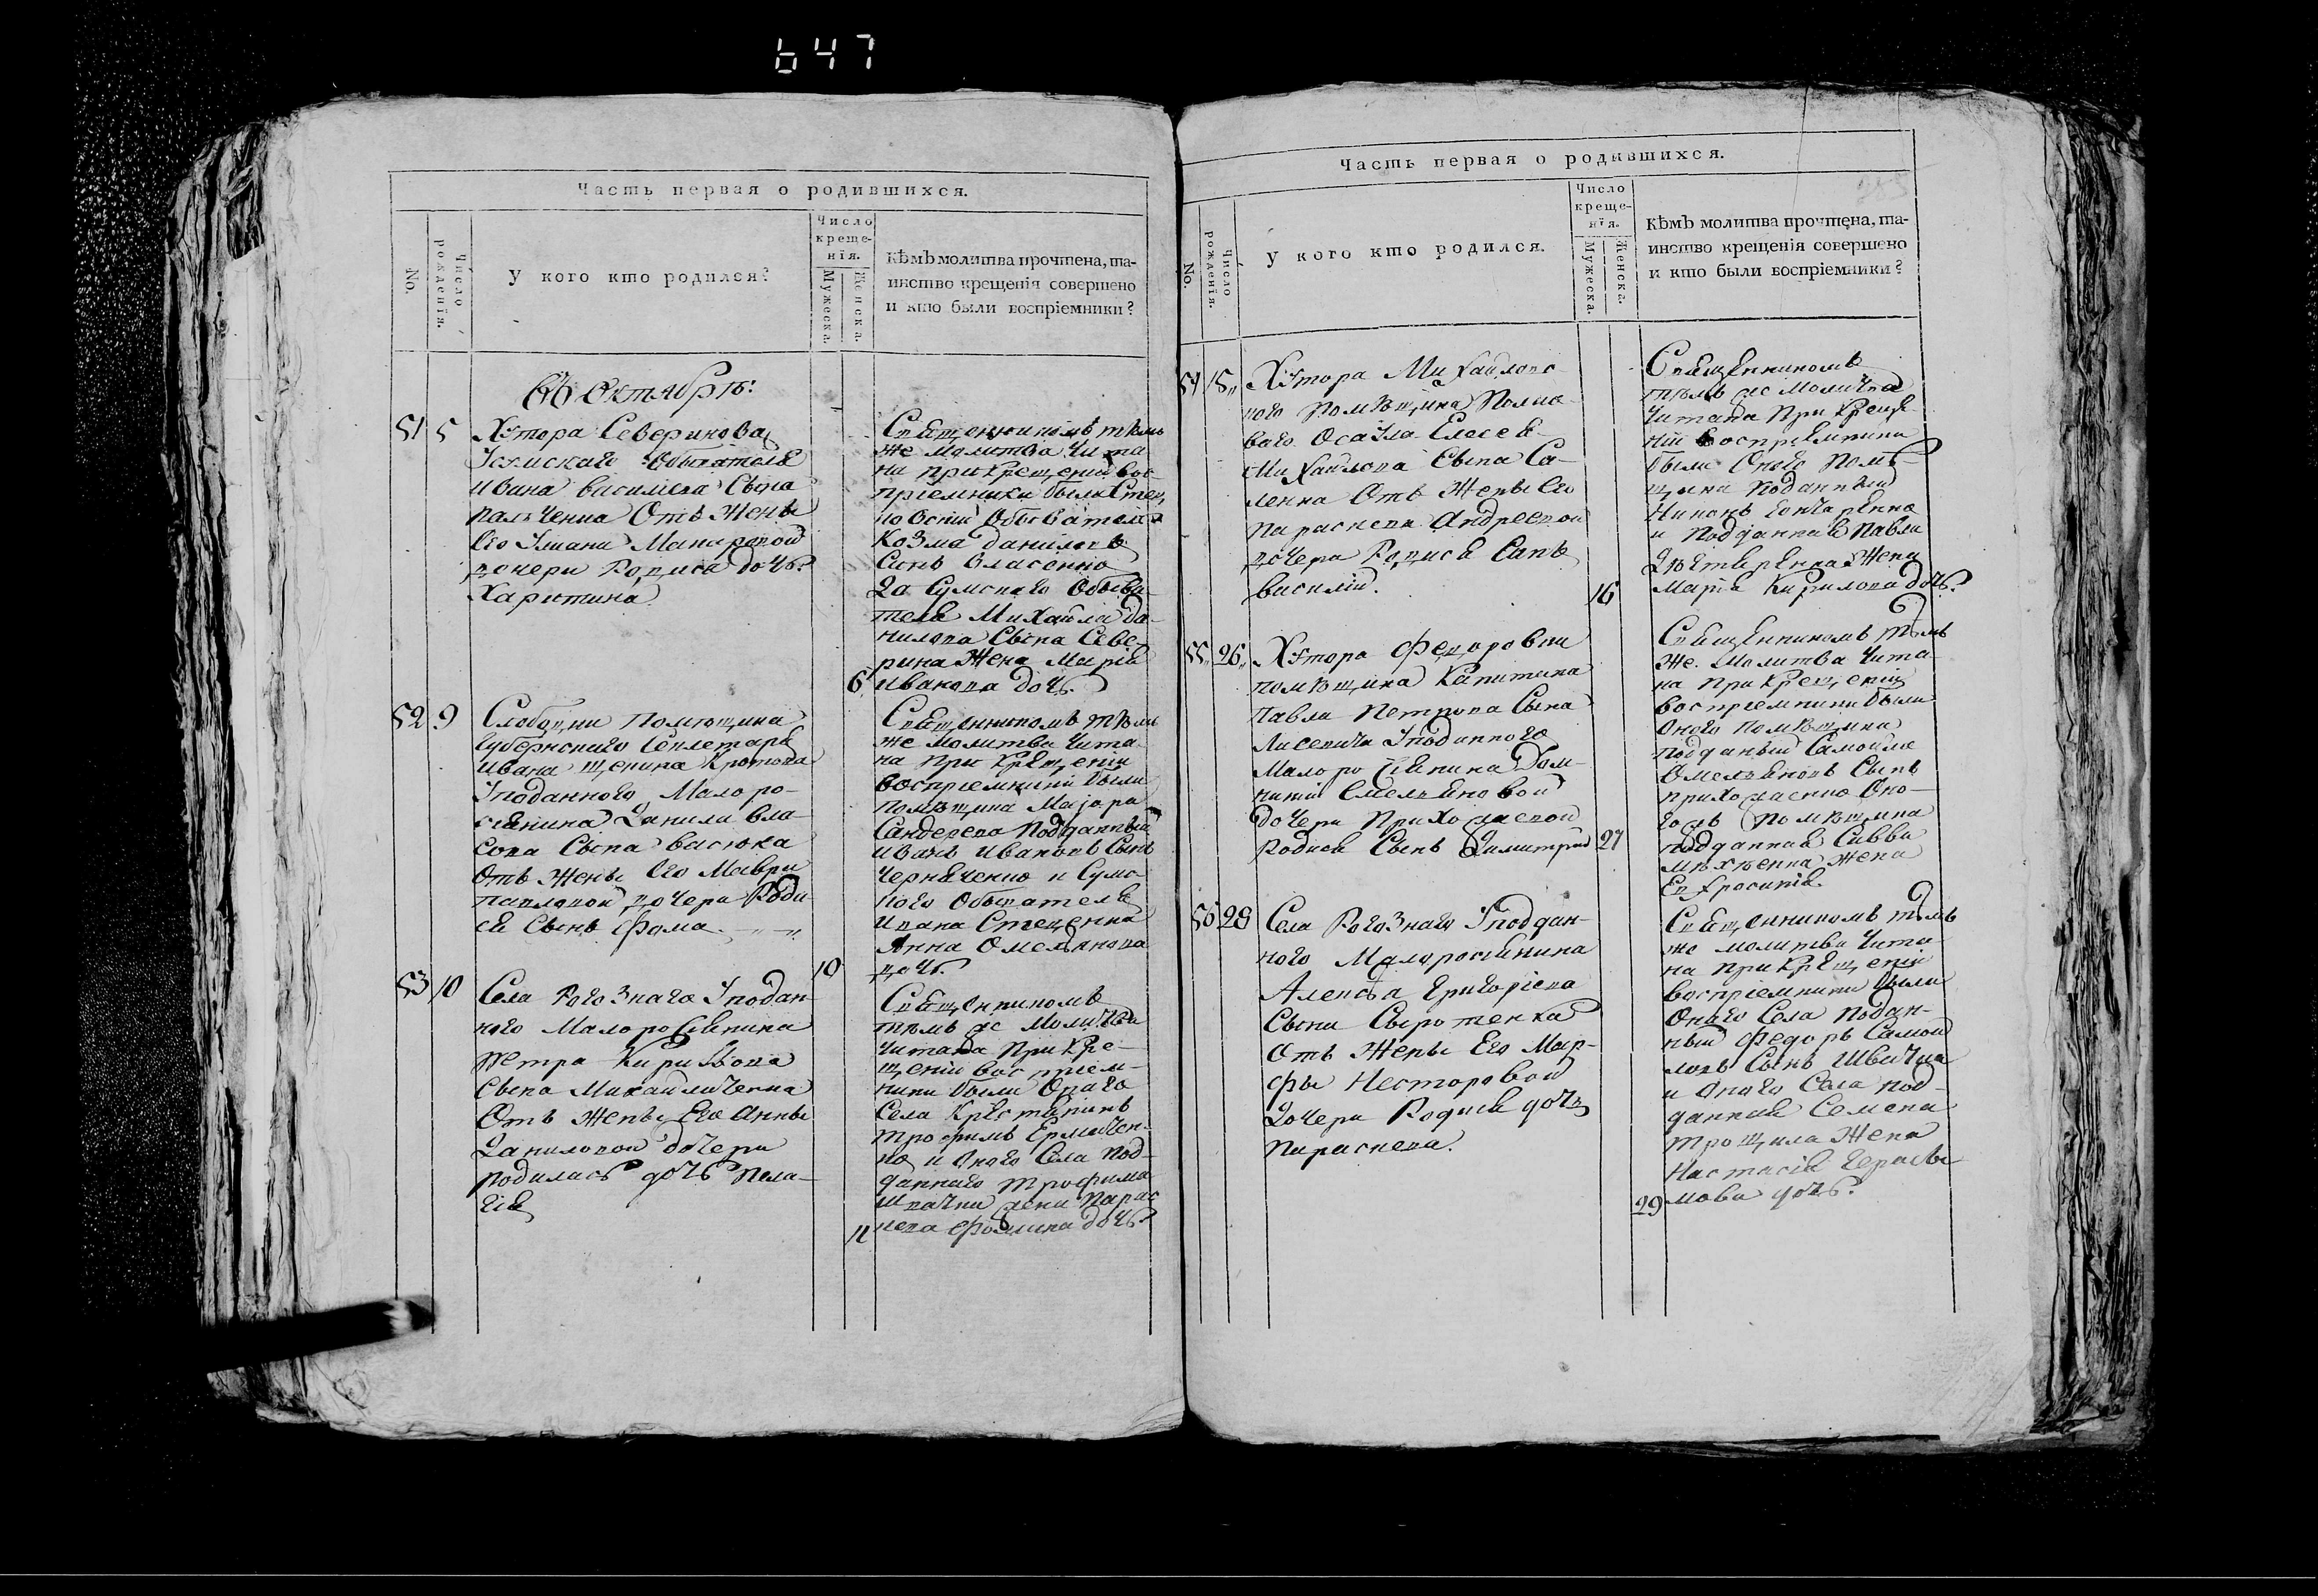 647
Часть первая о родившихся.
No.
Число рожденія.
У кого кто родился?
Число
креще-
нія.
Мужеска
Женска
Кѣмъ молитва прочтена, та-
инство крещенія совершено
и кто были воспріемники?
Въ октябрѣ:
51 5
Хутора Северинова
Усумскаго Обывателя
Ивана василіева Сына
Пальченка Отъ Жены
Его Улиани Макаровой
дочери Родися дочь
Харитина
Священникомъ тѣмъ
же молитва Чита
на при крещеніи вос
пріемники были
Обыватель
Козма данiловъ
Синъ власенко
да Сумскаго Обыва
теля Михайла да
нилова Сына Севе
рина Жена Марія
6 Иванова дочь
52 9
Слободки помѣщика
Губернского Секлетаря
Ивана щекина Кротова
Уподанного Малоро-
сіянина Данила Вла-
сова Сына васюка
Отъ Жены Его Маври
павловой дочери Роди
ся Сынъ Фома.
10
Священникомъ тѣмъ
же молитва Чита
на при Крещеніи
воспріемники были
помѣщика Маiора
Сандерева Подданный
Иванъ Ивановъ Сынъ
Черняченко и Сумс
кого Обывателя
Ивана Стеценка
Анна Омелянова
дочь
53 10
Села Рогознаго Уподан
ного Малоросіянина
Петра Кирилова
Сына Михайличенка
Отъ Жены Его Анны
Даниловой дочери
родилась дочь Пела-
гія
Священникомъ
тѣмъ же Молитва
Читана При Кре-
щеніи воспріем-
ники были Онаго
Села Крестянинъ
трофимъ Ермачен-
ко и Оного Села под-
данного трофима
Шпачки жена Парас
11 кева Фомина дочь
Часть первая о родившихся.
No.
Число рожденія.
У кого кто родился.
Число
креще-
нія.
Мужеска.
Женска.
Кѣмъ молитва прочтена, та-
инство крещенія совершено
и кто были воспріемники?
54 15
Хутора Михайловс
кого Помѣщика Полко
ваго Осаула Елесея
Михайлова Сына Са-
ленка Отъ Жены Его
Параскева Андреевой
дочери Родися Синъ
василій.
16
Священникомъ
тѣмъ же Молитва
Читана При Креще-
ніи воспріемники
были Оного Помѣ-
щика Подданный
Никонъ Гончаренко
и Подданная Павла
Жена
Марія Кирилова дочь
55 26
Хутора Федоровки
помѣщика Капитана
Павла Петрова Сына
Лисевича Уподанного
Малоросіянина Дом-
никіи Емельяновой
дочери Приходковой
Родися Сынъ Димитрій 27
Священникомъ тѣмъ
же Молитва Чита
на при Крещеніи
воспріемники были
Оного помѣщика
подданый Самойло
Омеляновъ Сынъ
приходченко Оно-
гожъ помѣщика
подданная Саввы
Жена
Евфросинія
56 28
Села Рогознаго Уподдан-
ного Малоросіянина
Алексѣя Григоріева
Сына Сыротенка
Отъ Жены Его Мар-
фы Несторовой
Дочери Родися дочь
Параскева.
Священникомъ тѣмъ
же молитва Чита
на при Крещеніи
воспріемники были
Оного Села Подан-
ный Федоръ Самой
ловъ Сынъ Швачка
и Оного Села под-
данная Семена
трощила Жена
Настасія Герасы
29 мова дочь